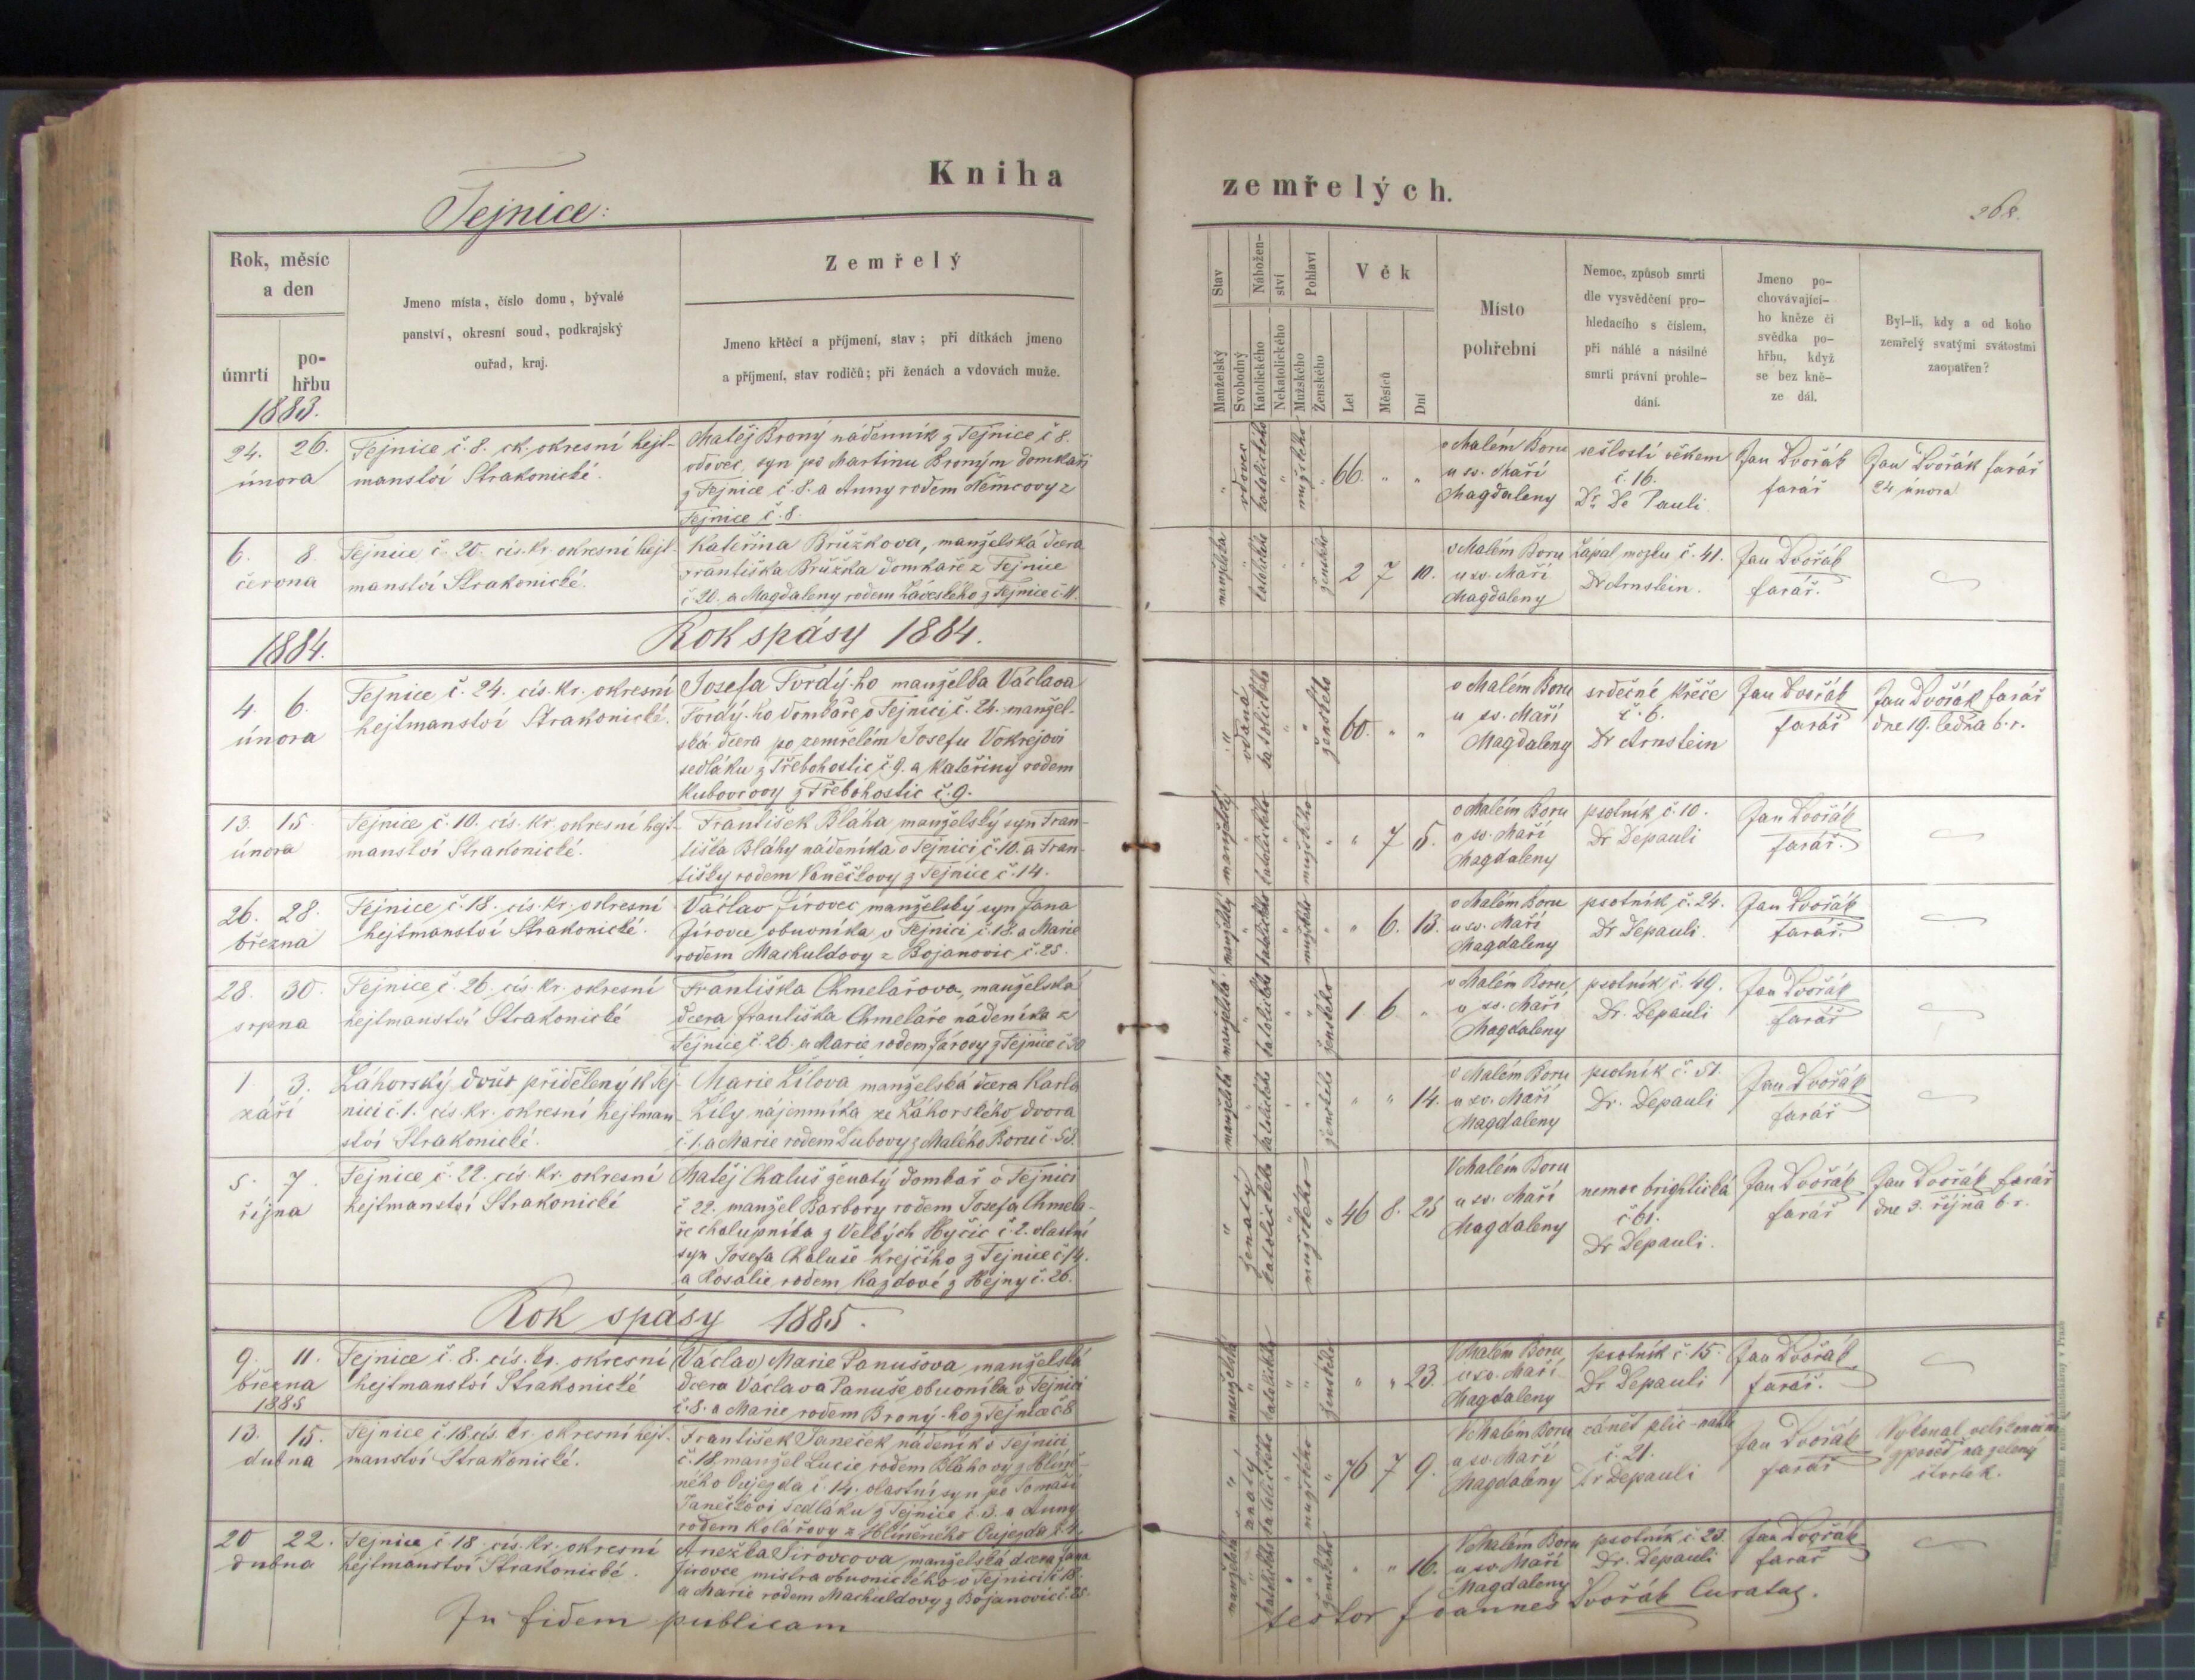 Kniha
Tejnice:
Rok, měsíc
a den
úmrtí
po-
hřbu
Jmeno místa, číslo domu, bývalé
panství, okresní soud, podkrajský
ouřad, kraj.
Zemřelý
Jmeno křtěcí a příjmení, stav; při dítkách jmeno
a příjmení, stav rodičů; při ženách a vdovách muže.
1883.
24. 26.
února
Tejnice č. 8. ck. okresní hejt-
manství Strakonické.
Matěj Brony nádenník z Tejnice č 8.
vdovec, syn po Martinu Broným domkaři
z Tejnice č. 8. a Anny rodem Němcovy z
Tejnice č. 8.
6. 8.
června
Tejnice č. 20. cís. kr. okresní hejt-
manství Strakonické.
Kateřina Brůžkova, manželská dcera
Františka Brůžka domkaře z Tejnice
č 20. a Magdaleny rodem z Tejnice č 11.
1884.
Rok spásy 1884.
4. 6.
února
Tejnice č. 24. cís. kr. okresní
hejtmanství Strakonické.
Josefa Tvrdý-ho manželka Václava
Tvrdý-ho domkáře v Tejnici č. 24. manžel-
ská dcera po zemřelém Josefu Vokrejovi
sedláku z Třebohostic č 9. a Kateřiny rodem
Kubovcovy z Třebohostic č. 9.
13. 15.
února
Tejnice č. 10. cís. kr. okresní hejt-
manství Strakonické.
František Bláha manželský syn Fran-
tiška Bláhy nádeníka v Tejnici č. 10. a Fran-
tišky rodem Vaněčkovy z Tejnice č. 14.
26. 28.
března
Tejnice č. 18. cís. kr. okresní
hejtmanství Strakonické.
Václav Jirovec manželský syn Jana
Jirovce obuvníka v Tejnici č. 18. a Marie
rodem Machuldovy z Bojanovic č. 25.
28. 30.
srpna
Tejnice č. 26. cís. kr. okresní
hejtmanství Strakonické
Františka Chmelařova, manželská
dcera Františka Chmelaře nádeníka z
Tejnice č. 26. a Marie rodem Járovy z Tejnice č 30
1 3.
září
Záhorský dvůr přidělený k Tej-
nici č. 1. cís. kr. okresní hejtman-
ství Strakonické.
Marie Zílova manželská dcera Karla
Zíly nájemníka ze Záhorského dvora
č. 1. a Marie rodem Dubovy z Malého Boru č 53.
5. 7.
října
Tejnice č. 22. cís. kr. okresní
hejtmanství Strakonické
Matěj Chaluš ženatý domkař v Tejnici
č 22. manžel Barbory rodem Josefa Chmela-
ře chalupníka z Velkých Hyčic č. 2. vlastní
syn Josefa Chaluše krejčího z Tejnice č 14.
a Rosalie rodem Kazdové z Hejny č. 26.
Rok spásy 1885.
9. 11.
března
1885
Tejnice č. 8. cís. kr. okresní
hejtmanství Strakonické
(Václav) Marie Panušova manželská
dcera Václava Panuše obuvníka v Tejnici
č. 8. a Marie rodem Brony-ho z Tejnice č 8
13. 15.
dubna
Tejnice č. 18. cís. kr. okresní hejt-
manství Strakonické.
František Janeček nádeník v Tejnici
č. 18. manžel Lucie rodem Bláhovy z Hlině-
ného Oujezda č. 14. vlastní syn po Tomaši
Janečkovi sedláku z Tejnice č. 3. a Anny
rodem Kolářovy z Hliněného Oujezda č. 4.
20 22.
dubna
Tejnice č 18 cís. kr. okresní
hejtmanství Strakonické.
Anežka Jirovcova manželská dcera Jana
Jirovce mistra obuvnického v Tejnici č 18.
a Marie rodem Machuldovy z Bojanovic č. 25.
In fidem publicam
zemřelých.
268.
Stav
Nábožen-
ství
Pohlaví
Věk
Manželský
Svobodný
Katolického
Nekatolického
Mužského
Ženského
Let
Měsíců
Dní
Místo
pohřební
Nemoc, způsob smrti
dle vysvědčení pro-
hledacího s číslem,
při náhlé a násilné
smrti právní prohle-
dání.
Jmeno po-
chovávající-
ho kněze či
svědka po-
hřbu, když
se bez kně-
ze dál.
Byl-li, kdy a od koho
zemřelý svatými svátostmi
zaopatřen?
" vdovec katolického " mužského " 66. " "
v Malém Boru
u sv. Maří
Magdaleny
sešlostí věkem
č. 16.
Dr. De Pauli.
Jan Dvořák
farář
Jan Dvořák farář
24 února
manželská " katolického " " ženského 2 7 10.
v Malém Boru
u sv. Maří
Magdaleny
Zápal mozku č. 41.
Dr Arnstein.
Jan Dvořák
farář.
" vdaná katolického " " ženského 60. " "
v Malém Boru
u sv. Maří
Magdaleny
srdečné křeče
č. 6.
Dr Arnstein
Jan Dvořák
farář
Jan Dvořák farář
dne 19. ledna b. r.
manželský " katolického " mužského " " 7 5.
v Malém Boru
u sv. Maří
Magdaleny
psotník č. 10.
Dr Depauli
Jan Dvořák
farář.
manželský " katolického " mužského " " 6. 13.
v Malém Boru
u sv. Maří
Magdaleny
psotník č. 24.
Dr Depauli.
Jan Dvořák
farář.
manželská " katolického " " ženského 1 6 "
v Malém Boru
u sv. Maří
Magdaleny
psotník č. 49.
Dr. Depauli
Jan Dvořák
farář
manželská " katolického " " ženského " " 14.
v Malém Boru
u sv. Maří
Magdaleny
psotník č. 51.
Dr. Depauli
Jan Dvořák
farář
" ženatý katolického " mužského " 46 8. 25
V Malém Boru
u sv. Maří
Magdaleny
nemoc brightická
č. 61.
Dr Depauli.
Jan Dvořák
farář
Jan Dvořák farář
dne 3. října b. r.
manželská " katolického " " ženského " " 23.
V Malém Boru
u sv. Maří
Magdaleny
psotník č. 15.
Dr Depauli
Jan Dvořák
farář.
" ženatý katolického " mužského " 76 7 9.
V Malém Boru
u sv. Maří
Magdaleny
zánět plic - náhle
č. 21.
Dr Depauli
Jan Dvořák
farář
Vykonal velikonoční
zpověď na zelený
čtvrtek.
manželská " katolického " " ženského " " 16.
V Malém Boru
u sv. Maří
Magdaleny
psotník č. 23.
Dr. Depauli
Jan Dvořák
farář
testor Joannes Dvořák Curatus.